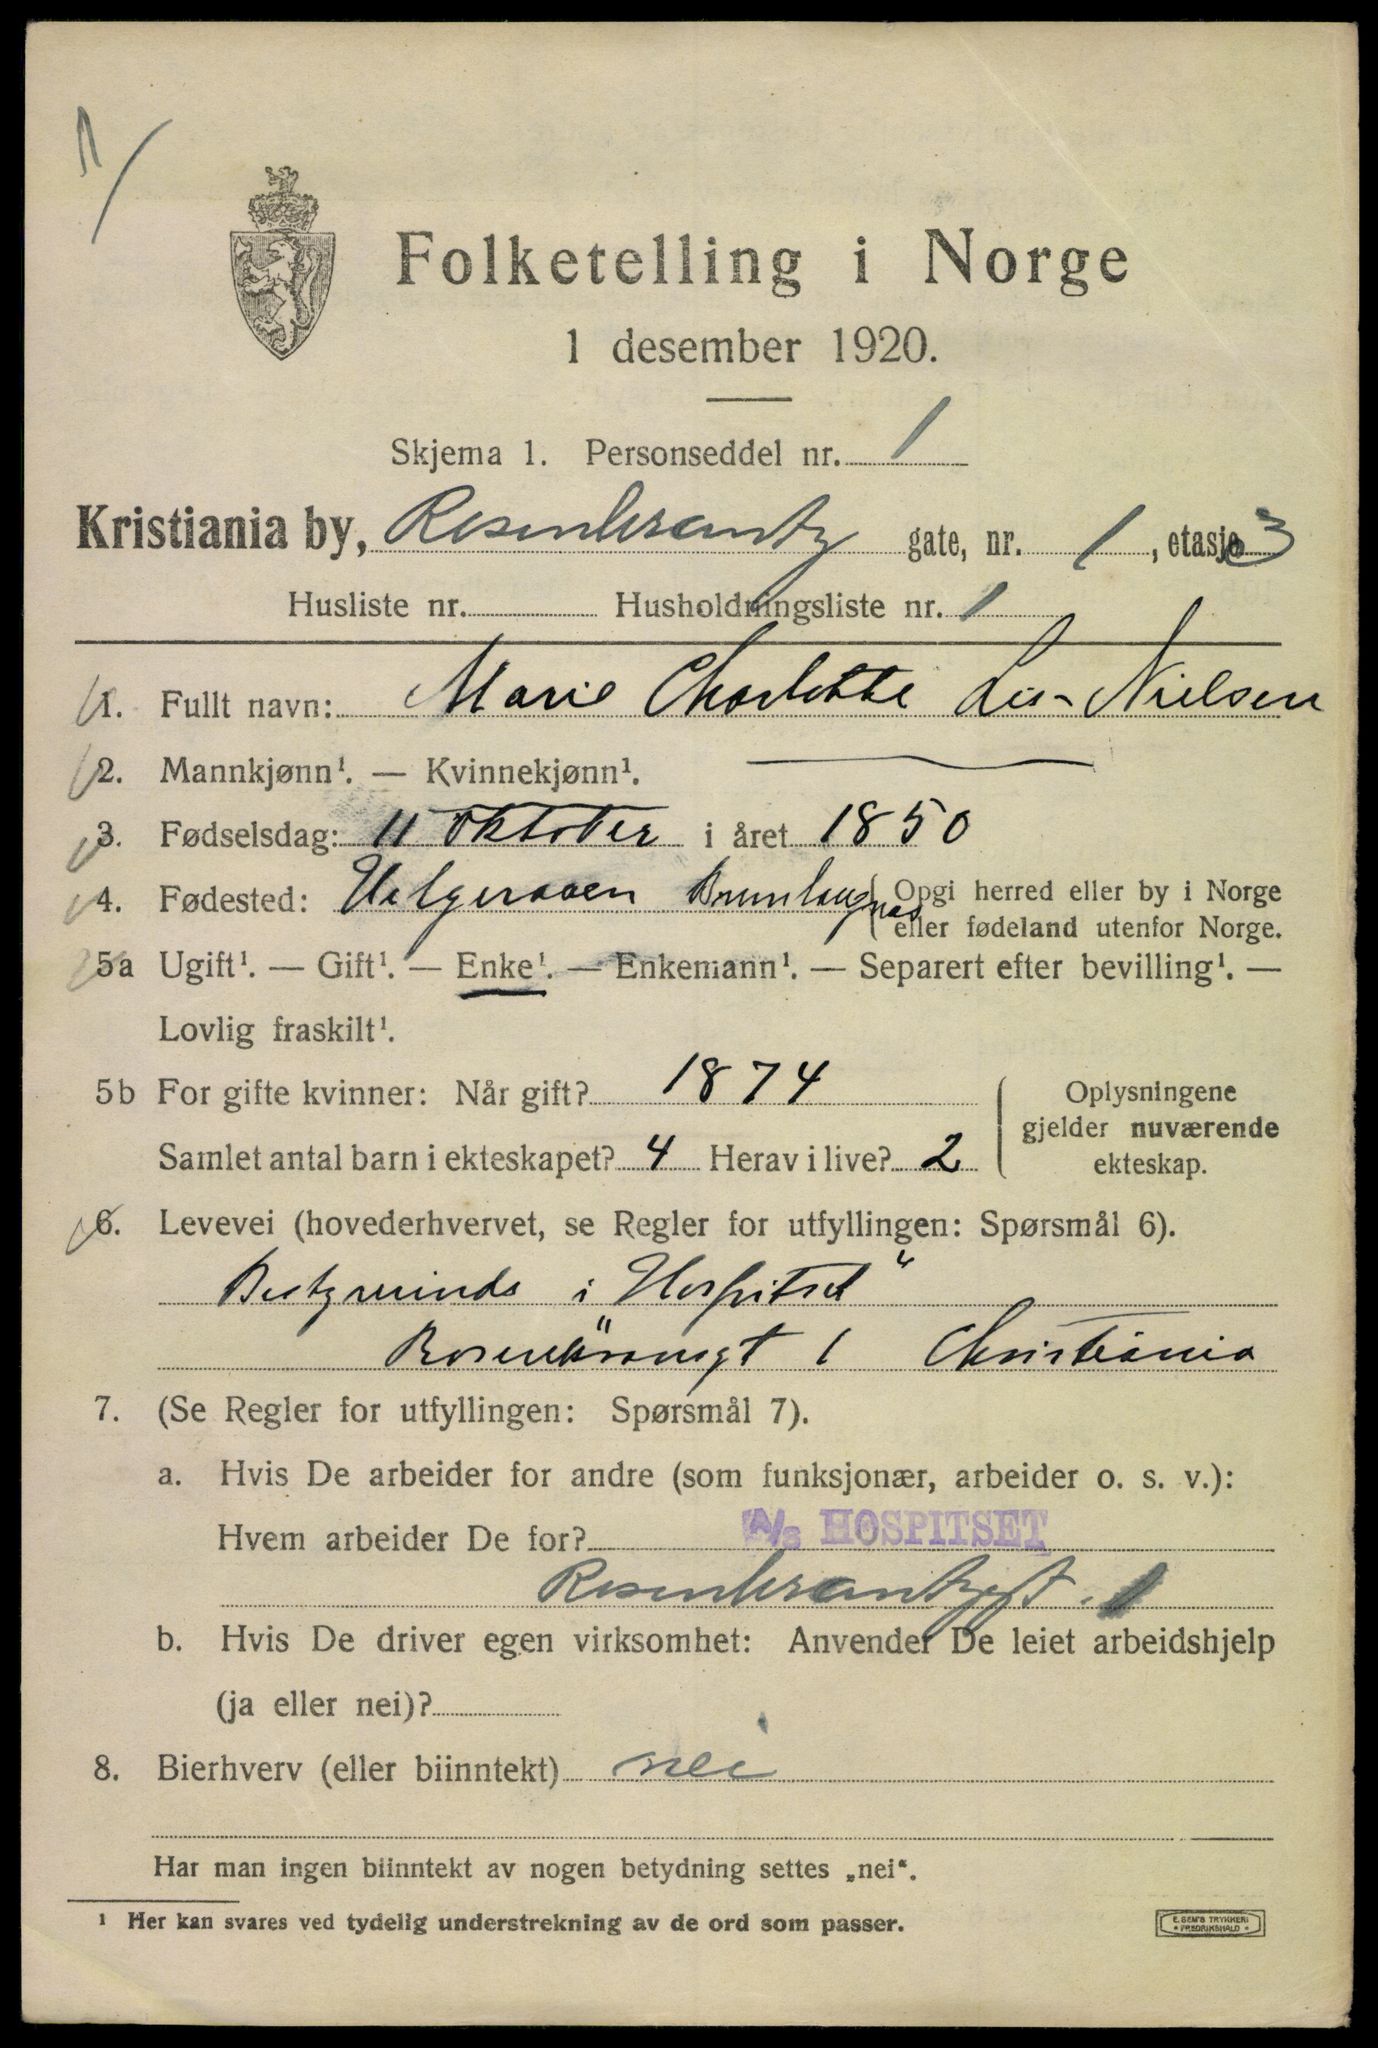 1
Folketelling i Norge
1 desember 1920.
Skjema 1. Personseddel nr. 1
Kristiania by, Rosenkrantz gate, nr. 1, etasje 3
Husliste nr. Husholdningsliste nr. 1
1. Fullt navn: Marie Charlotte Lis-Nielsen
2. Mannkjønn¹. — Kvinnekjønn¹.
3. Fødselsdag: 11 Oktober i året 1850
4. Fødested: Helgeroaen Brunlaugnæs
Opgi herred eller by i Norge
eller fødeland utenfor Norge.
5a Ugift¹. — Gift¹. — Enke¹. — Enkemann¹. — Separert efter bevilling¹. —
Lovlig fraskilt¹.
5b For gifte kvinner: Når gift? 1874
Samlet antal barn i ekteskapet? 4 Herav i live? 2
Oplysningene
gjelder nuværende
ekteskap.
6. Levevei (hovederhvervet, se Regler for utfyllingen: Spørsmål 6).
i Hospitset"
1 Christiania
7. (Se Regler for utfyllingen: Spørsmål 7).
a. Hvis De arbeider for andre (som funksjonær, arbeider o. s. v.):
Hvem arbeider De for? A/s HOSPITSET
Rosenkrantzgt. 1
b. Hvis De driver egen virksomhet: Anvender De leiet arbeidshjelp
(ja eller nei)?
8. Bierhverv (eller biinntekt) nei
Har man ingen biinntekt av nogen betydning settes „nei“.
¹ Her kan svares ved tydelig understrekning av de ord som passer.
E. SEM'S TRYKKERI
FREDRIKSHALD